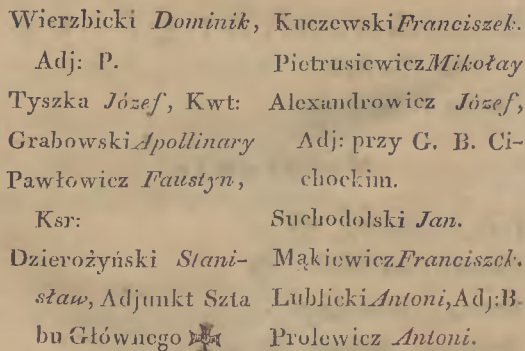 Wierzbicki Dominik,
Adj: P.
Tyszka Józef, Kwt:
Grabowski Apollinary
Pawłowicz Faustyn,
Ksr:
Dzierożyński Stani-
sław, Adjunkt Szta
bu Głównego ✠
Kuczewski Franciszek.
Pietrusiewicz Mikołay
Alexandrowicz Józef,
Adj: przy G. B. Ci-
chockim.
Suchodolski Jan.
Mąkiewicz Franciszek.
Lublicki Antoni, Adj: B.
Prolewicz Antoni.